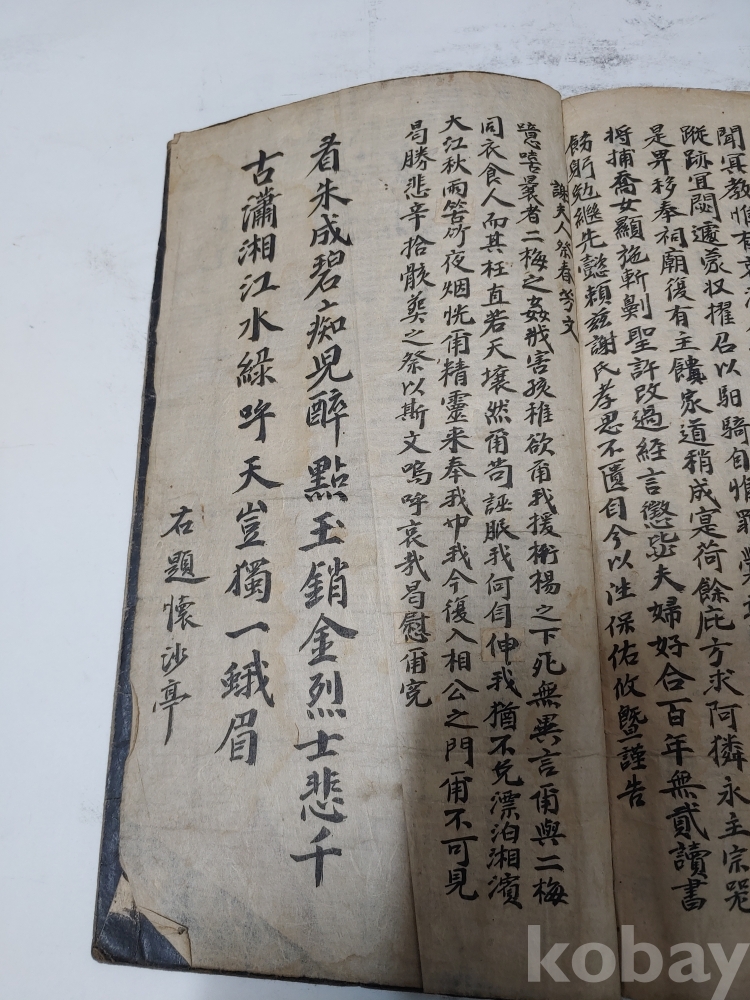 聞冥教惟有
蹤跡宜閟遽蒙収擢召以馹騎自惟罪
是畀移奉祠廟復有主饋家道稍成寔荷餘庇方求阿㷠永主宗器
將捕喬女顯施斬劓聖許改過經言懲毖夫婦好合百年無貳讀書
飭躬勉継先懿頼玆謝氏孝思不匱自今以徃保佑攸曁謹告
謝夫人祭春芳文
噫嘻曩者二梅之姦戕害孩稚欲甭我援桁楊之下死無異言甭與二梅
同衣食人而其枉直若天壤然甭苟誣服我何自伸我猶不免漂泊湘濱
大江秋雨苦竹夜烟恍甭精靈来奉我巾我今復入相公之門甭不可見
曷勝悲辛拾骸葬之祭以斯文嗚呼哀哉曷慰甭寃
看朱成碧痴児醉點玉銷金烈士悲千
古瀟湘江水綠吁天豈獨一蛾眉
右題懷沙亭
kobay